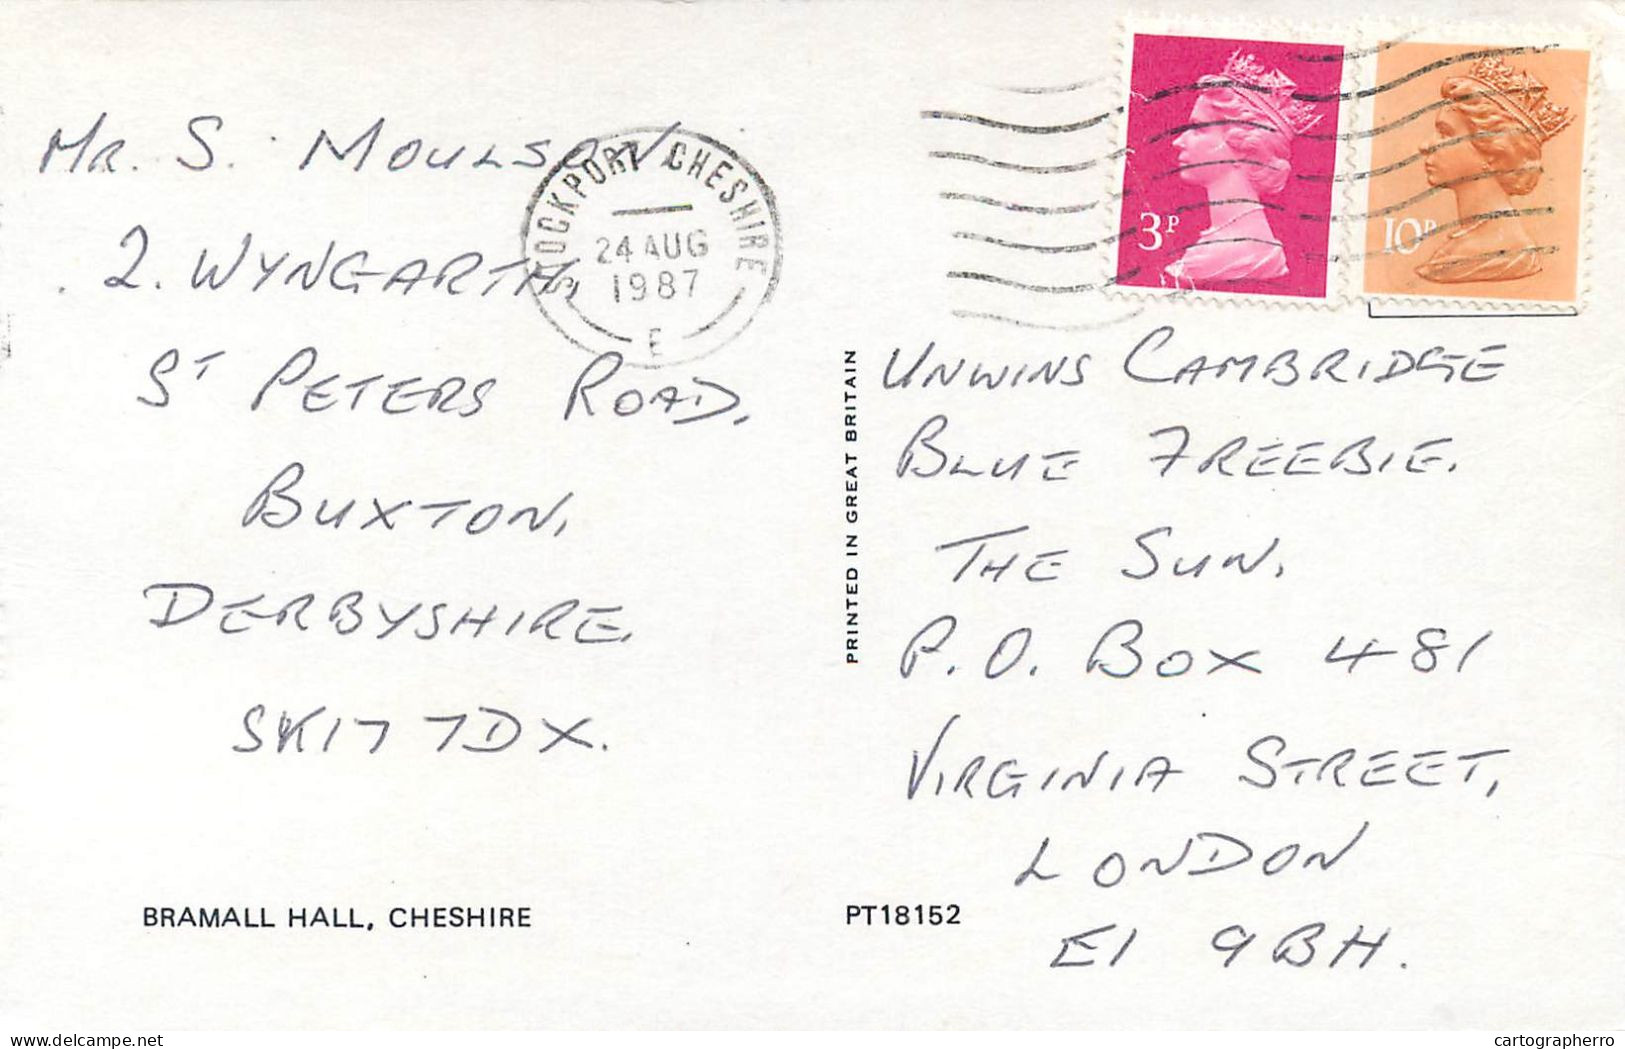 Mr. S. MOULSON
2. WYNGARTH,
ST PETERS ROAD,
BUXTON,
DERBYSHIRE.
SK17 7DX.
BRAMALL HALL, CHESHIRE
STOCKPORT CHESHIRE
24 AUG
1987
E
3P
10P
PRINTED IN GREAT BRITAIN
UNWINS CAMBRIDGE
BLUE FREEBIE.
THE SUN.
P.O. BOX 481
VIRGINIA STREET,
LONDON
E1 9BH.
PT18152
delcampe.net
cartographerro